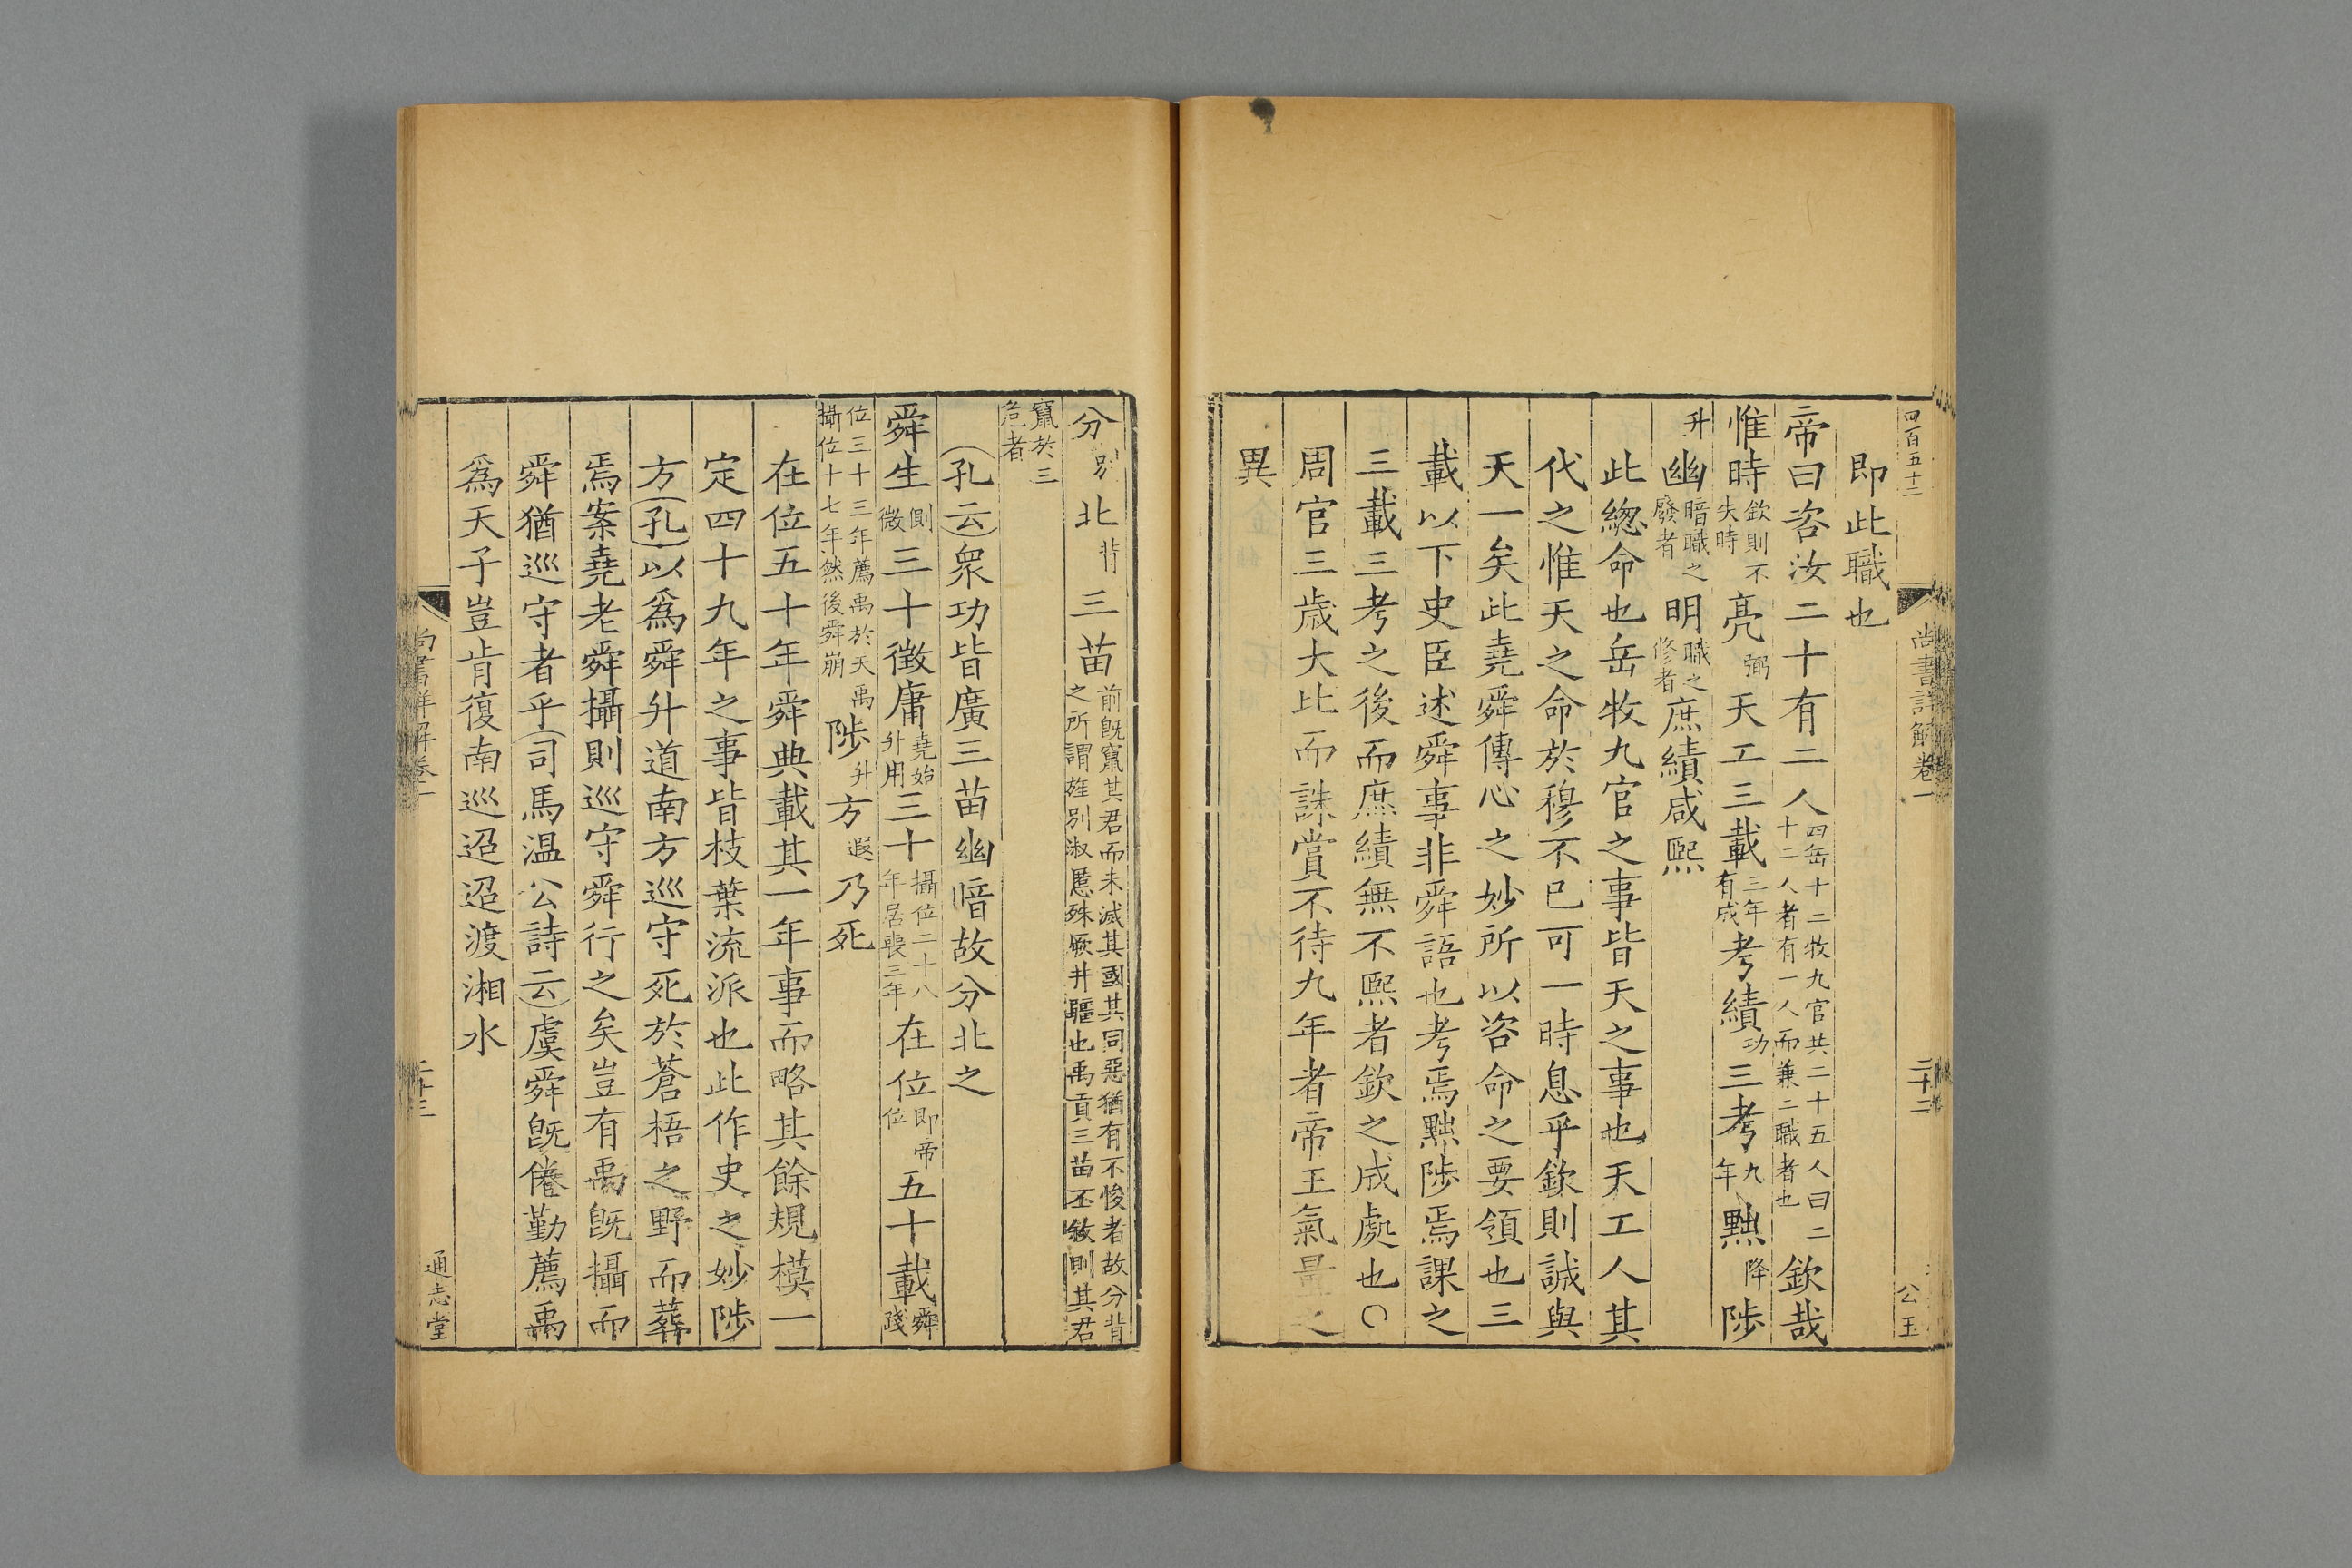 四百五十二
尚書詳解卷一
二十二
公玉
即此職也
帝曰咨汝二十有二人四岳十二牧九官共二十五人曰二十二人者有一人而兼二職者也欽哉
惟時欽則不失時亮弼天工三載三年有成考績功三考九年黜降陟
升幽暗職之廢者明職之修者庶績咸熙
此緫命也岳牧九官之事皆天之事也天工人其
代之惟天之命於穆不已可一時息乎欽則誠與
天一矣此堯舜傳心之妙所以咨命之要領也三
載以下史臣述舜事非舜語也考焉黜陟焉課之
三載三考之後而庶績無不熙者欽之成處也〇
周官三歲大比而誅賞不待九年者帝王氣量之
異
分別北背三苗前旣竄其君而未滅其國其同惡猶有不悛者故分背之所謂旌別淑慝殊厥井疆也禹貢三苗丕敘則其君
竄於三危者
孔云衆功皆廣三苗幽暗故分北之
舜生側微三十徵庸堯始升用三十攝位二十八年居喪三年在位即帝位五十載舜踐
位三十三年薦禹於天禹攝位十七年然後舜崩陟升方遐乃死
在位五十年舜典載其一年事而略其餘規模一
定四十九年之事皆枝葉流派也此作史之妙陟
方孔以爲舜升道南方巡守死於蒼梧之野而葬
焉案堯老舜攝則巡守舜行之矣豈有禹旣攝而
舜猶巡守者乎司馬温公詩云虞舜旣倦勤薦禹
爲天子豈肯復南巡迢迢渡湘水
尚書詳解卷一
二十三
通志堂